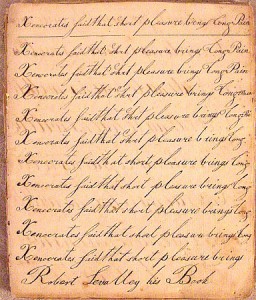 Xenocrates said that short pleasure brings Long Pain
Xenocrates said that short pleasure brings Long Pain
Xenocrates said that short pleasure brings Long Pain
Xenocrates said that short pleasure brings Long
Xenocrates said that short pleasure brings Long
Xenocrates said that short pleasure brings Long
Xenocrates said that short pleasure brings Long
Xenocrates said that short pleasure brings Long
Xenocrates said that short pleasure brings Long
Xenocrates said that short pleasure brings Long
Xenocrates said that short pleasure brings
Robert his Book